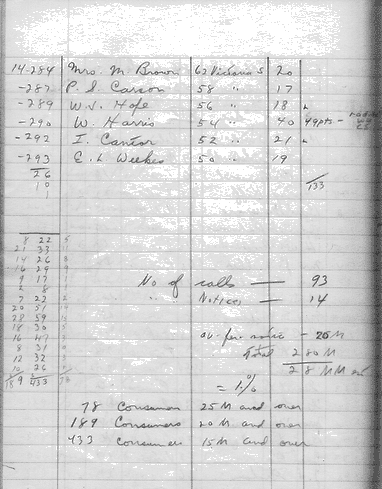 14-284 Mrs. M. Brown 62 Victoria S 20
-287 P. S. Carson 58 " 17
-289 W. S. Hope 56 " 18
-290 W. Harris 54 " 40 49pts -
-292 I. Cantor 52 " 21
-293 E. L. Weekes 50 " 19
26
10
1
133
8 22 5
21 33
14 26
16 29
9 17
2 8
7 22
20 51
28 59
18 30
16 47
8 31
12 32
10 26
189 433 78
No of calls — 93
" Notices — 14
av. per notice - 20 M
Total 280 M
28 MM
= 1.%
78 Consumers 25 M and over
189 Consumers 20 M and over
433 Consumers 15 M and over